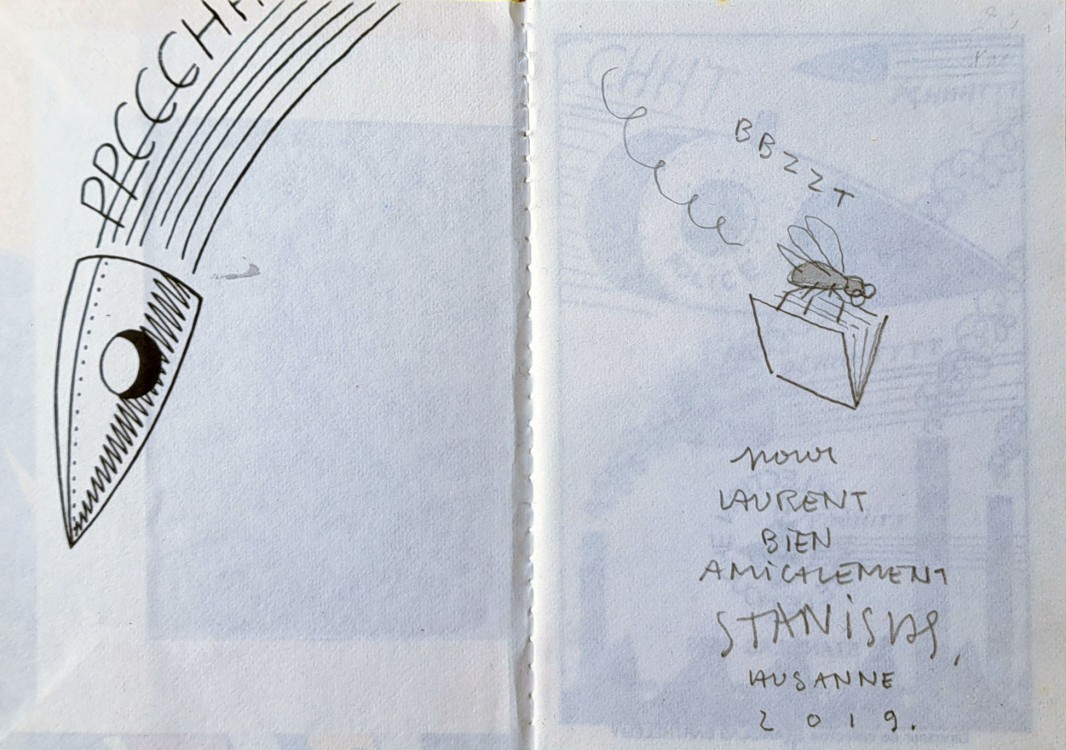 PPCCCHH
BBZZT
pour
LAURENT
BIEN
AMICALEMENT
STANISLAS,
LAUSANNE
2019.